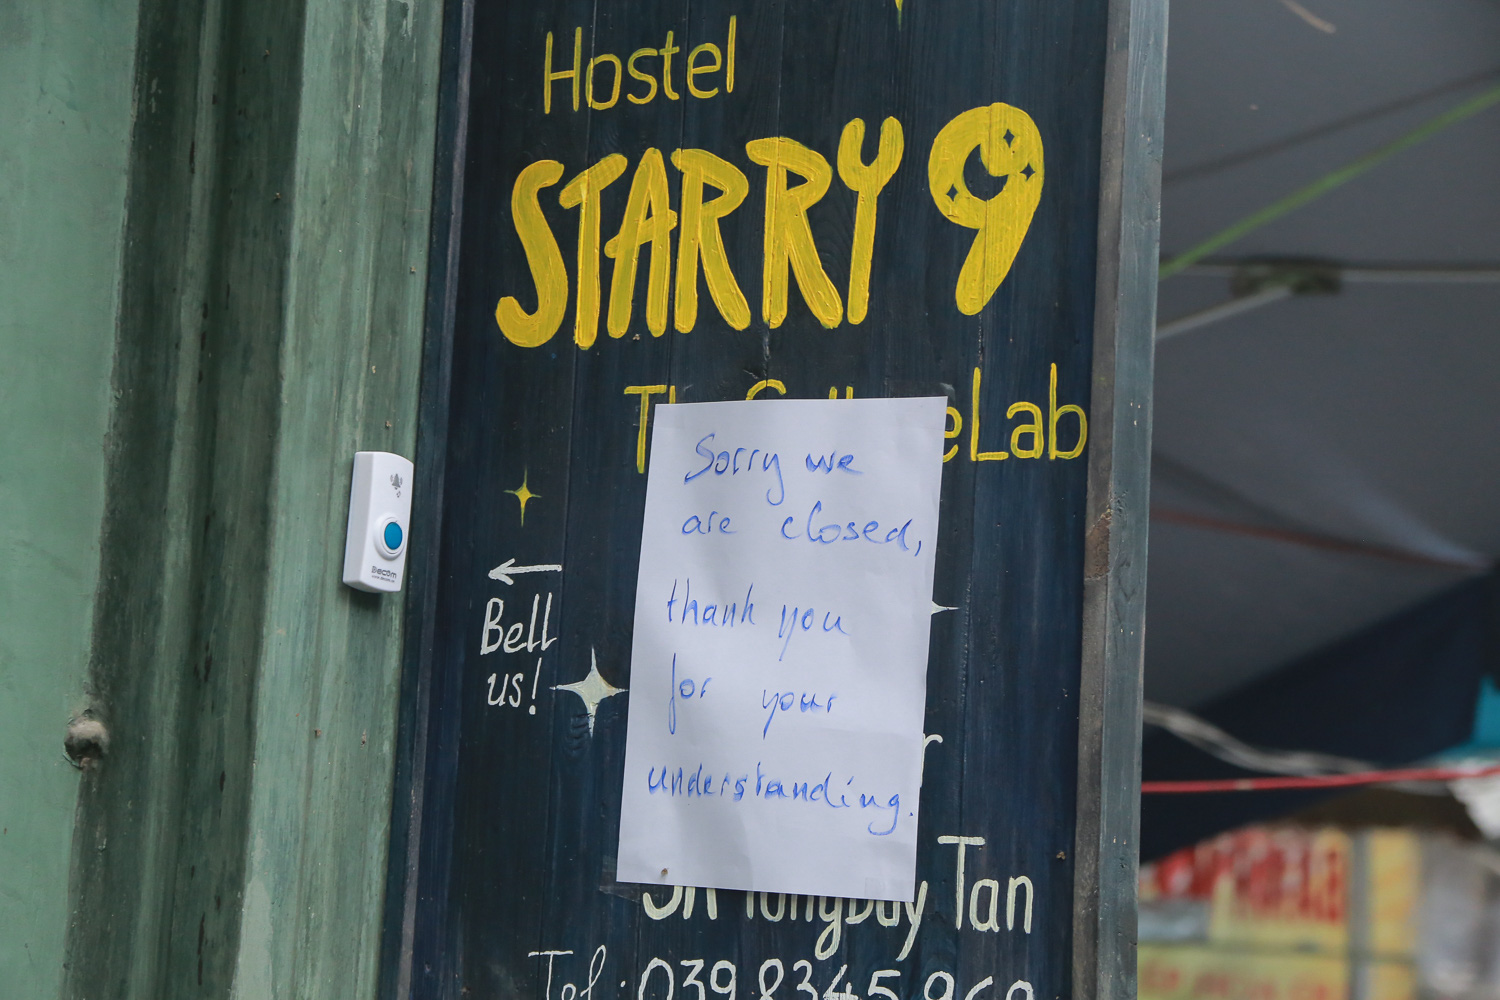 Hostel
STARRY 9
Lab
Sorry we
are closed,
thank you
for your
understanding.
Becom
Bell
us!
Tan
Tel: 039 8345 969